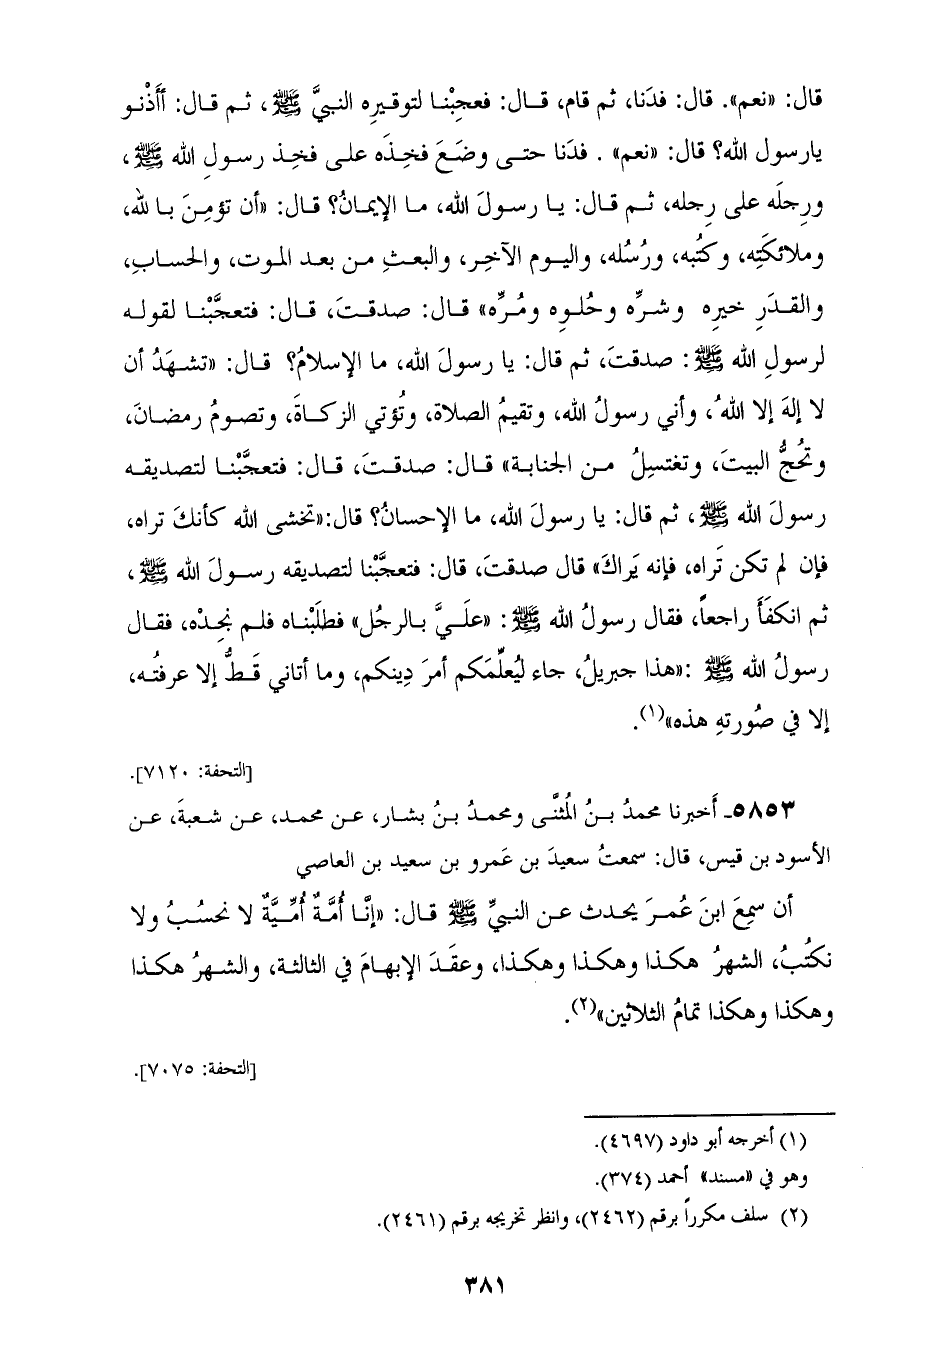 قال: «نعم». قال: فدَنا، ثم قام، قال: فعجِبْنا لتوقيره النبيَّ ﷺ، ثم قال: أَأَدْنو
يارسول الله؟ قال: «نعم» . فدَنا حتى وضَعَ فخِذَه على فخِذ رسولِ الله ﷺ،
ورِجلَه على رِجله، ثم قال: يا رسولَ الله، ما الإيمانُ؟ قال: «أن تؤمِنَ بالله،
وملائكَتِه، وكتُبه، ورُسُله، واليوم الآخِر، والبعثِ من بعد الموت، والحسابِ،
والقدَرِ خيرِه وشرِّه وحُلوِه ومُرِّه» قال: صدقتَ، قال: فتعجَّبْنا لقوله
لرسولِ الله ﷺ: صدقتَ، ثم قال: يا رسولَ الله، ما الإسلامُ؟ قال: «تشهَدُ أن
لا إلهَ إلا اللهُ، وأني رسولُ الله، وتقيمُ الصلاة، وتُؤتي الزكاةَ، وتصومُ رمضانَ،
وتحُجُّ البيتَ، وتغتسِلُ من الجنابة» قال: صدقتَ، قال: فتعجَّبْنا لتصديقه
رسولَ الله ﷺ، ثم قال: يا رسولَ الله، ما الإحسانُ؟ قال:«تخشى الله كأنكَ تراه،
فإن لم تكن تَراه، فإنه يَراكَ» قال صدقتَ، قال: فتعجَّبْنا لتصديقه رسولَ الله ﷺ،
ثم انكفَأَ راجعاً، فقال رسولُ الله ﷺ: «علَيَّ بالرجُل» فطلَبْناه فلم نجِدْه، فقال
رسولُ الله ﷺ :«هذا جبريلُ، جاء ليُعلِّمَكم أمرَ دِينكم، وما أتاني قَطُّ إلا عرفتُه،
إلا في صُورتهِ هذه»(١).
[التحفة: ٧١٢٠].
٥٨٥٣ـ أَخبرنا محمدُ بنُ المُثنَّى ومحمدُ بنُ بشار، عن محمد، عن شعبةَ، عن
الأسود بن قيس، قال: سمعتُ سعيدَ بن عَمرو بن سعيد بن العاصي
أن سمِعَ ابنَ عُمرَ يحدث عن النبيِّ ﷺ قال: «إنَّا أُمَّةٌ أُمِّيَّةٌ لا نحسُبُ ولا
نكتُبُ، الشهرُ هكذا وهكذا وهكذا، وعقَدَ الإبهامَ في الثالثة، والشهرُ هكذا
وهكذا وهكذا تمامُ الثلاثين»(٢).
[التحفة: ٧٠٧٥].
(١) أخرجه أبو داود (٤٦٩٧).
وهو في «مسند» أحمد (٣٧٤).
(٢) سلف مكرراً برقم (٢٤٦٢)، وانظر تخريجه برقم (٢٤٦١).
٣٨١